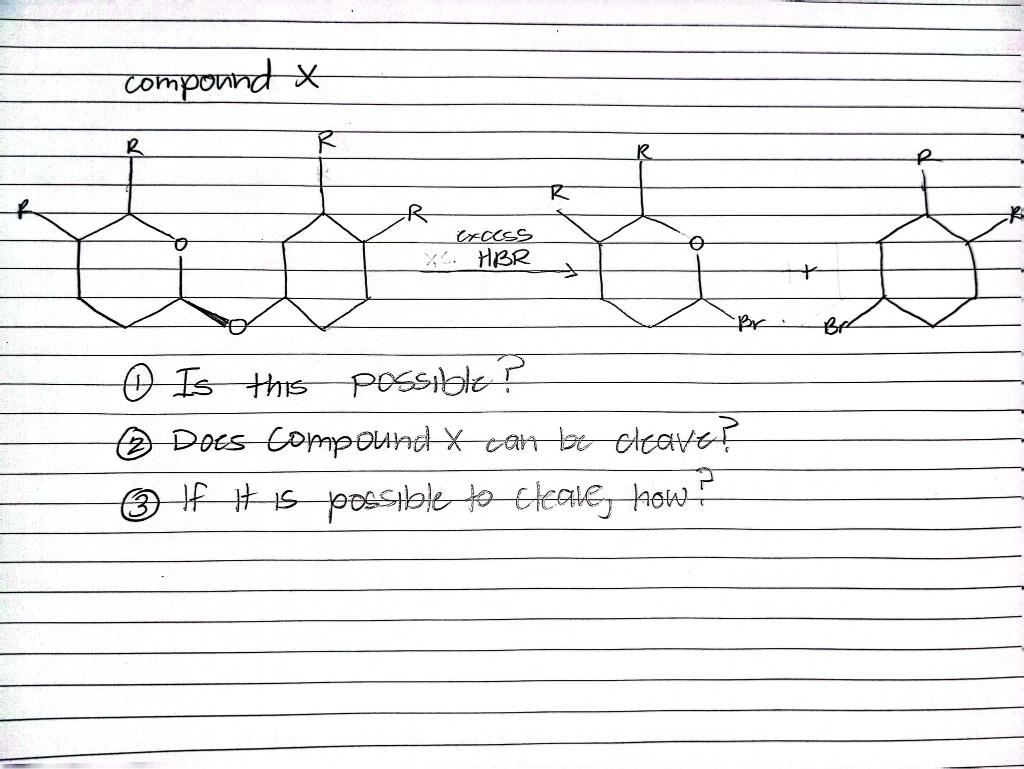 compound X
R R R R
R R R
O O
excess
x HBR
+
O Br Br
① Is this possible?
② Does Compound X can be cleave?
③ If It is possible to cleave, how?